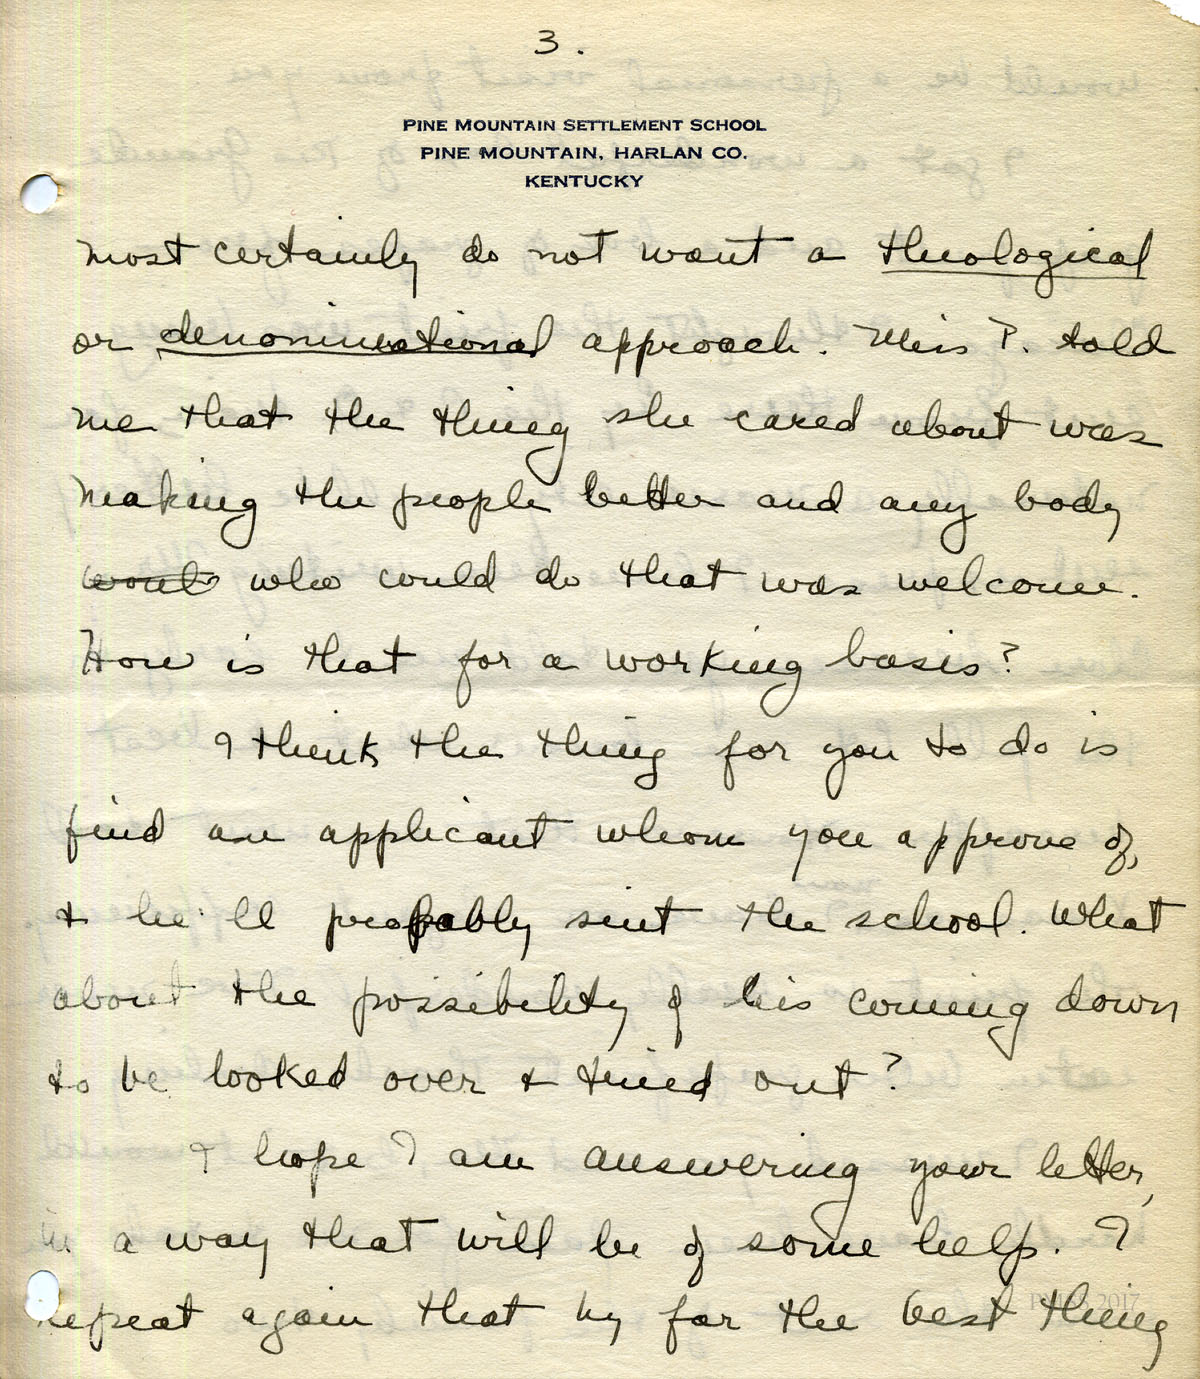 3.
PINE MOUNTAIN SETTLEMENT SCHOOL
PINE MOUNTAIN, HARLAN CO.
KENTUCKY
most certainly do not want a theological
or denominational approach. Miss P. told
me that the thing she cared about was
making the people better and any body
who could do that was welcome.
How is that for a working basis?
I think the thing for you to do is
find an applicant whom you approve of,
& he'll probably suit the school. What
about the possibility of his coming down
to be looked over & tried out?
I hope I am answering your letter,
in a way that will be of some help. I
repeat again that by far the best thing